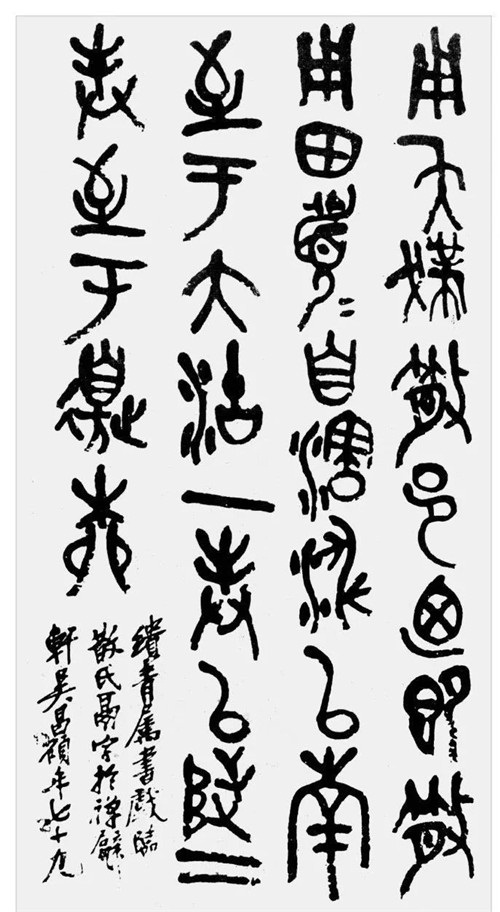 用夨撲散邑迺即散
用田眉=自瀗涉以南
至于大沽一封以陟二
封至于邊柳
青屬書戲臨
散氏鬲字於禪甓
軒吳昌碩年七十九